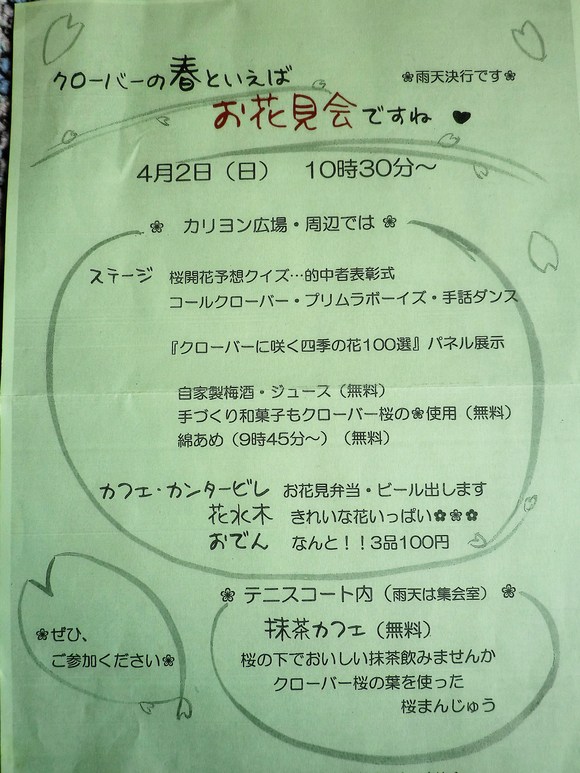 クローバーの春といえば
❀雨天決行です❀
お花見会ですね ♥
4月2日（日） 10時30分～
❀ カリヨン広場・周辺では ❀
ステージ 桜開花予想クイズ…的中者表彰式
コールクローバー・プリムラボーイズ・手話ダンス
『クローバーに咲く四季の花100選』パネル展示
自家製梅酒・ジュース（無料）
手づくり和菓子もクローバー桜の❀使用（無料）
綿あめ（9時45分～）（無料）
カフェ・カンタービレ お花見弁当・ビール出します
花水木 きれいな花いっぱい✿❀✿
おでん なんと！！3品100円
❀ テニスコート内（雨天は集会室） ❀
抹茶カフェ（無料）
桜の下でおいしい抹茶飲みませんか
クローバー桜の葉を使った
桜まんじゅう
❀ぜひ、
ご参加ください❀